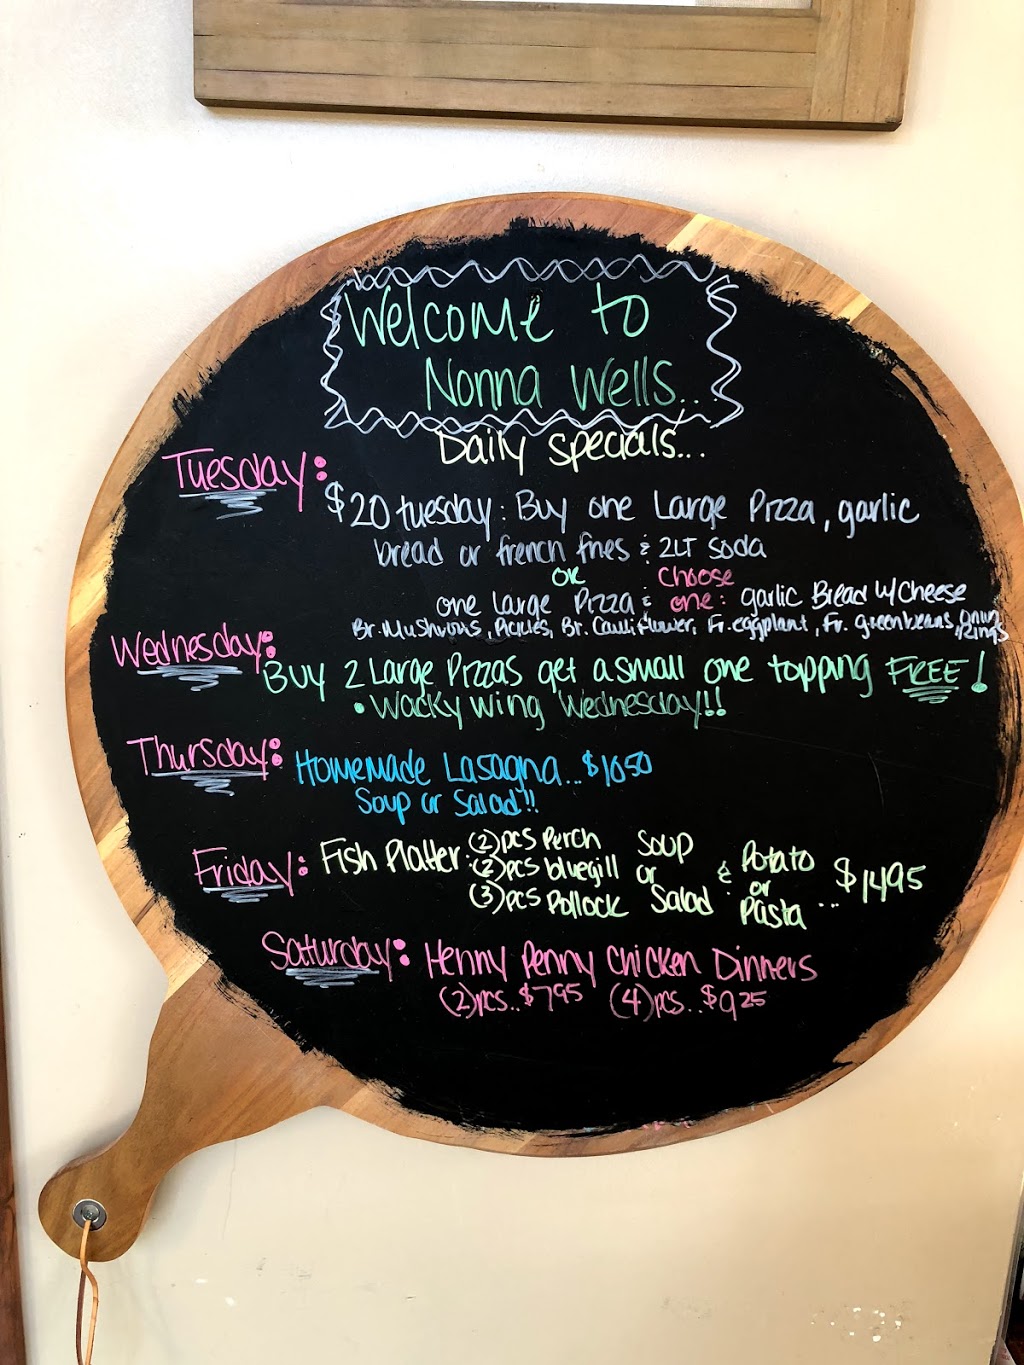 Welcome to
Nonna Wells...
Daily specials...
Tuesday:
$20 tuesday: Buy one Large Pizza, garlic
bread or french fries & 2LT soda
OR
one Large Pizza & choose one: garlic Bread w/cheese
Br. Mushrooms, Pickles, Br. Cauliflower, Fr. eggplant, Fr. greenbeans, Onion Rings
Wednesday:
Buy 2 Large Pizzas get a small one topping FREE!
• Wacky Wing Wednesday!!
Thursday:
Homemade Lasagna... $1050
Soup or Salad!!
Friday:
Fish Platter: (2) pcs Perch
(2) pcs bluegill
(3) pcs Pollock
Soup
or
Salad
&
Potato
or
Pasta
... $1495
Saturday:
Henny Penny Chicken Dinners
(2) pcs.. $795 (4) pcs.. $925